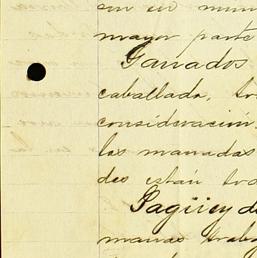 sin en mun
mayor parte
Ganados
caballada, to
consideración
las manadas
des están tod
Pagüey de
manas traba